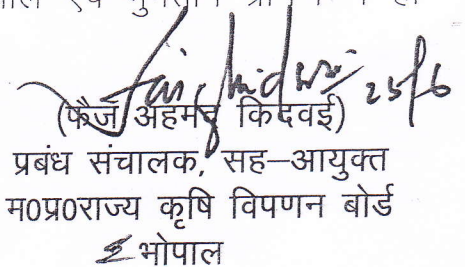 25/6
(फैज अहमद किदवई)
प्रबंध संचालक, सह–आयुक्त
म0प्र0राज्य कृषि विपणन बोर्ड
भोपाल